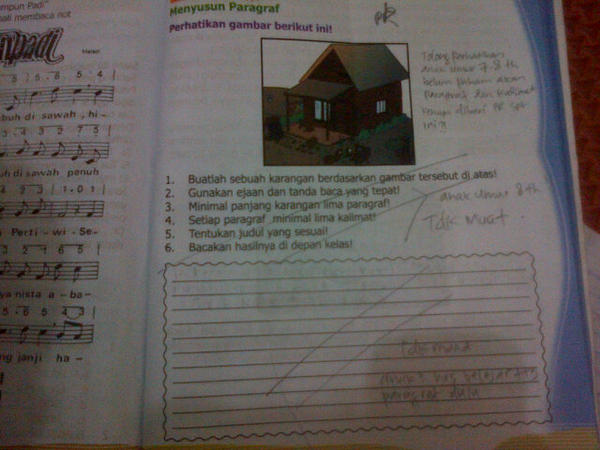 mpun Padi"
bali membaca not
npadi
buh di sawah , hi-
uh di sawah penuh
Perti - wi - Se-
ya nista a - ba-
ng janji ha -
Menyusun Paragraf
Perhatikan gambar berikut ini!
PR
Tolong perhatikan
anak umur 7-8 th
belum paham akan
paragraf dan kalimat
kenapa diberi PR spt
ini?!
1. Buatlah sebuah karangan berdasarkan gambar tersebut di atas!
2. Gunakan ejaan dan tanda baca yang tepat!
3. Minimal panjang karangan lima paragraf!
4. Setiap paragraf minimal lima kalimat!
5. Tentukan judul yang sesuai!
6. Bacakan hasilnya di depan kelas!
anak umur 8 th
Tdk Muat.
paragraf dulu